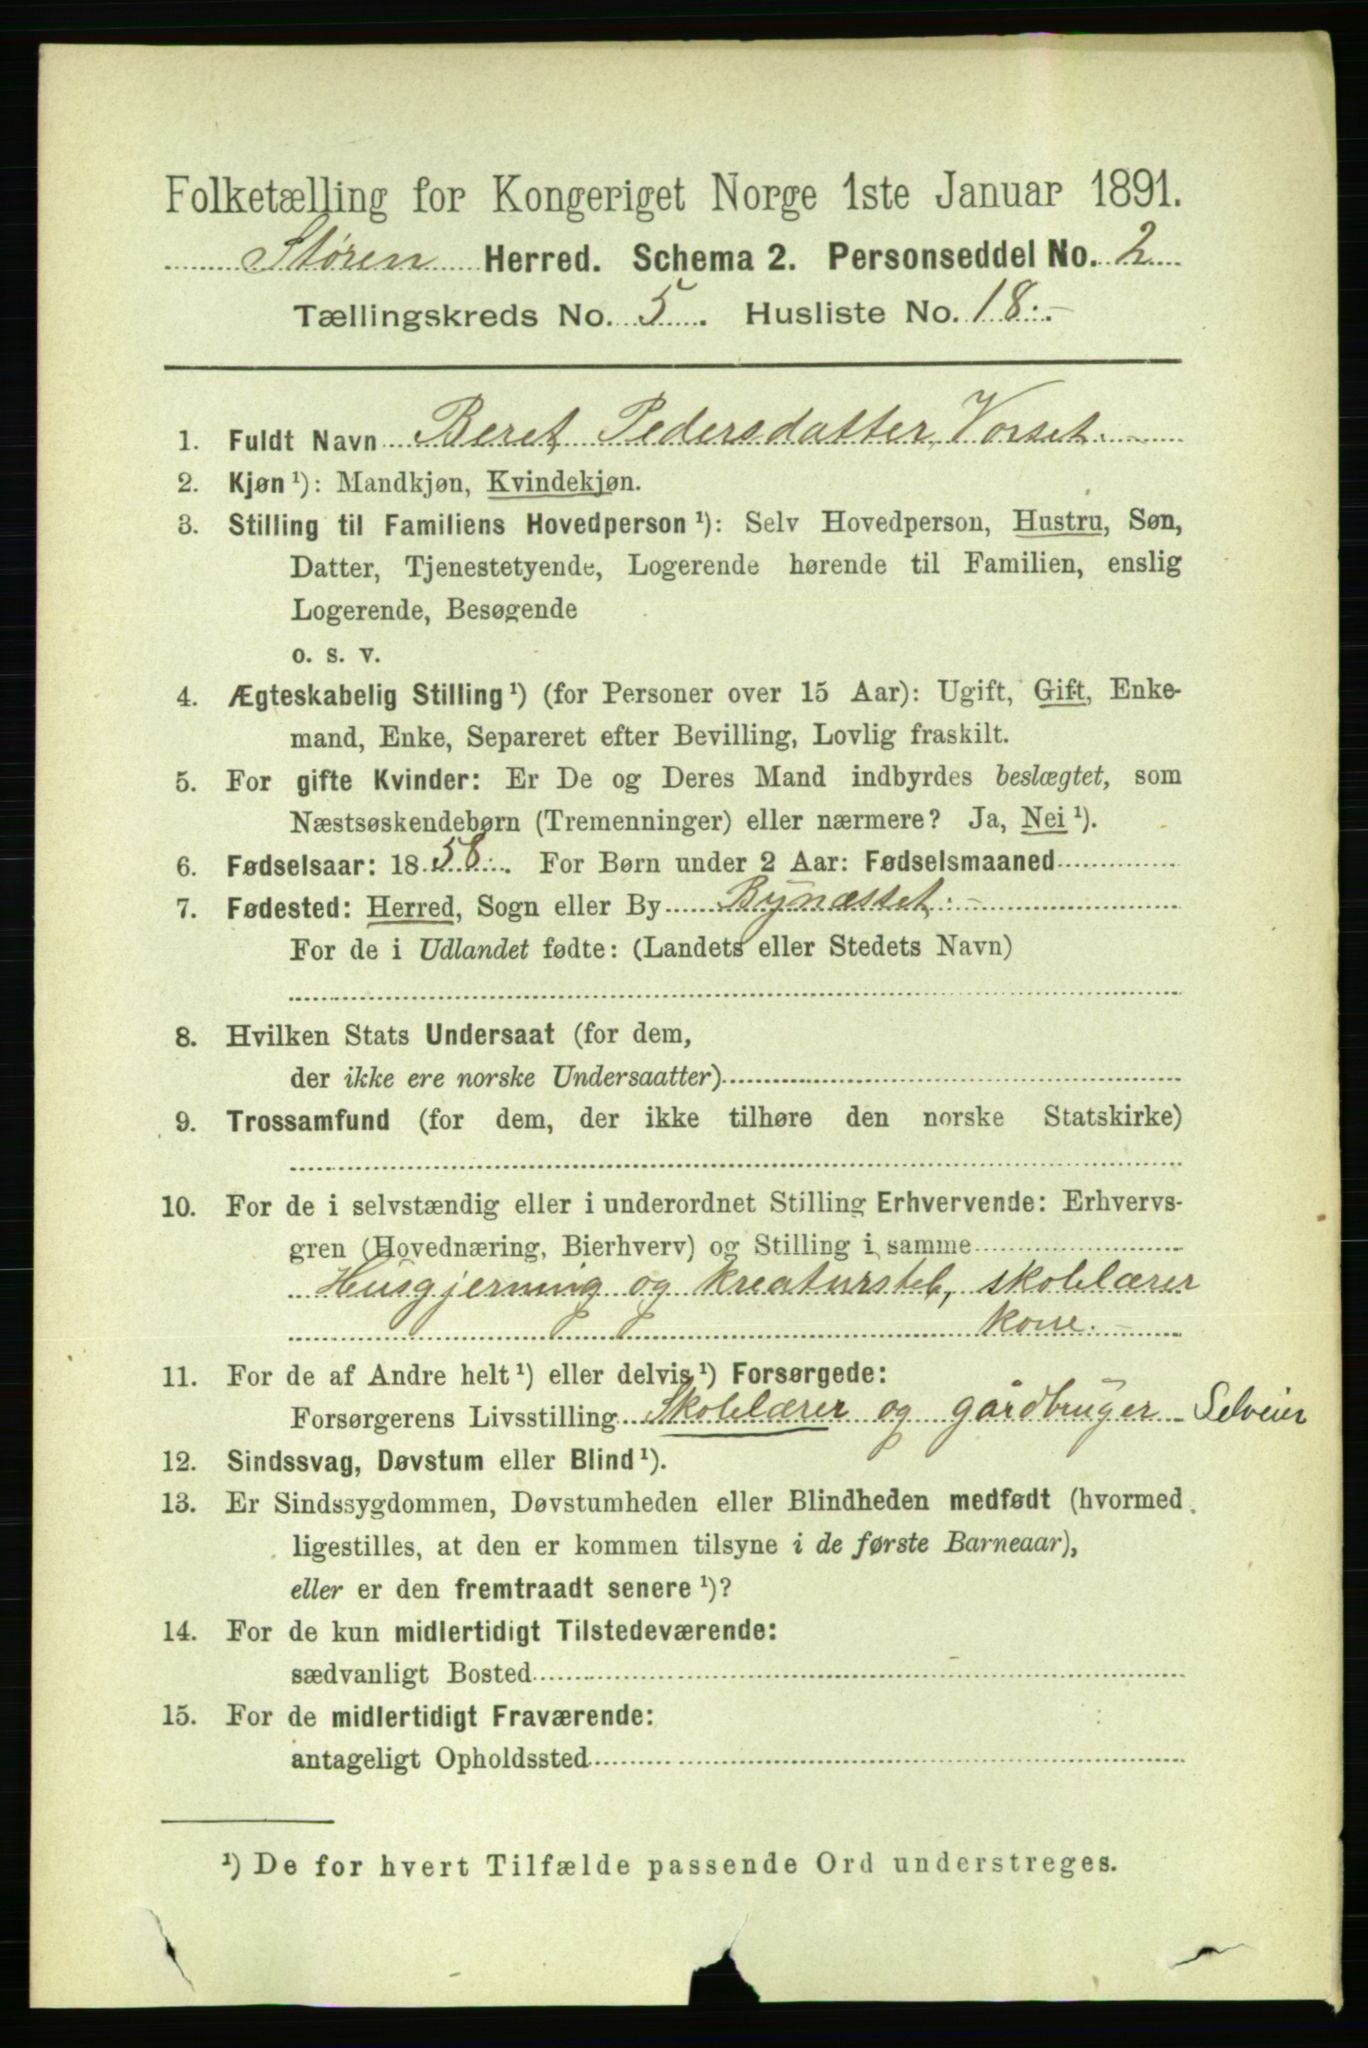 Folketælling for Kongeriget Norge 1ste Januar 1891.
Støren Herred. Schema 2. Personseddel No. 2
Tællingskreds No. 5. Husliste No. 18.
1. Fuldt Navn Beret Pedersdatter Vorset.
2. Kjøn¹): Mandkjøn, Kvindekjøn.
3. Stilling til Familiens Hovedperson¹): Selv Hovedperson, Hustru, Søn,
Datter, Tjenestetyende, Logerende hørende til Familien, enslig
Logerende, Besøgende
o. s. v.
4. Ægteskabelig Stilling¹) (for Personer over 15 Aar): Ugift, Gift, Enke-
mand, Enke, Separeret efter Bevilling, Lovlig fraskilt.
5. For gifte Kvinder: Er De og Deres Mand indbyrdes beslægtet, som
Næstsøskendebørn (Tremenninger) eller nærmere? Ja, Nei¹).
6. Fødselsaar: 1858. For Børn under 2 Aar: Fødselsmaaned
7. Fødested: Herred, Sogn eller By Bynæsset.
For de i Udlandet fødte: (Landets eller Stedets Navn)
8. Hvilken Stats Undersaat (for dem,
der ikke ere norske Undersaatter)
9. Trossamfund (for dem, der ikke tilhøre den norske Statskirke)
10. For de i selvstændig eller i underordnet Stilling Erhvervende: Erhvervs-
gren (Hovednæring, Bierhverv) og Stilling i samme
Husgjerning og kreaturstel, skolelærer
kone.
11. For de af Andre helt¹) eller delvis¹) Forsørgede:
Forsørgerens Livsstilling Skolelærer og gårdbruger - Selveier
12. Sindssvag, Døvstum eller Blind¹).
13. Er Sindssygdommen, Døvstumheden eller Blindheden medfødt (hvormed
ligestilles, at den er kommen tilsyne i de første Barneaar),
eller er den fremtraadt senere¹)?
14. For de kun midlertidigt Tilstedeværende:
sædvanligt Bosted
15. For de midlertidigt Fraværende:
antageligt Opholdssted
¹) De for hvert Tilfælde passende Ord understreges.